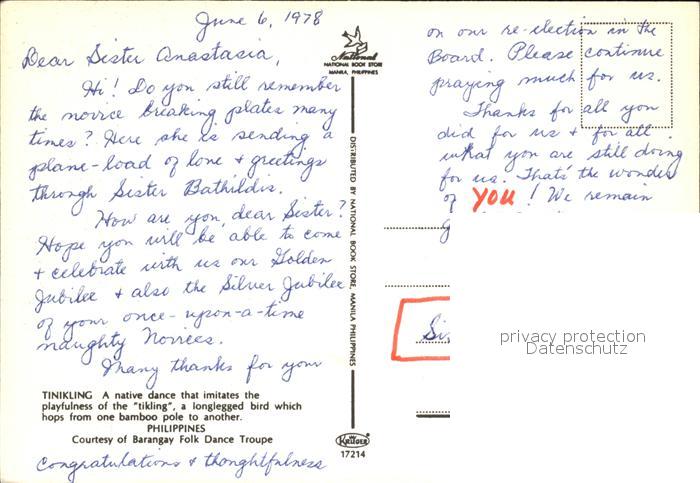 June 6, 1978
Dear Sister Anastasia,
Hi! Do you still remember
the novice breaking plates many
times? Here she is sending a
plane-load of love & greetings
through Sister Bathildis.
How are you, dear Sister?
Hope you will be able to come
& celebrate with us our Golden
Jubilee & also the Silver Jubilee
of your once-upon-a-time
naughty Novices.
Many thanks for your
TINIKLING A native dance that imitates the
playfulness of the "tikling", a longlegged bird which
hops from one bamboo pole to another.
PHILIPPINES
Courtesy of Barangay Folk Dance Troupe
congratulations & thoughtfulness
National
NATIONAL BOOK STORE
MANILA, PHILIPPINES
DISTRIBUTED BY NATIONAL BOOK STORE, MANILA PHILIPPINES
KRÜGER
17214
on our re-election in the
Board. Please continue
praying much for us.
Thanks for all you
did for us & for all
what you are still doing
for us. That's the wonder
of YOU! We remain
privacy protection
Datenschutz